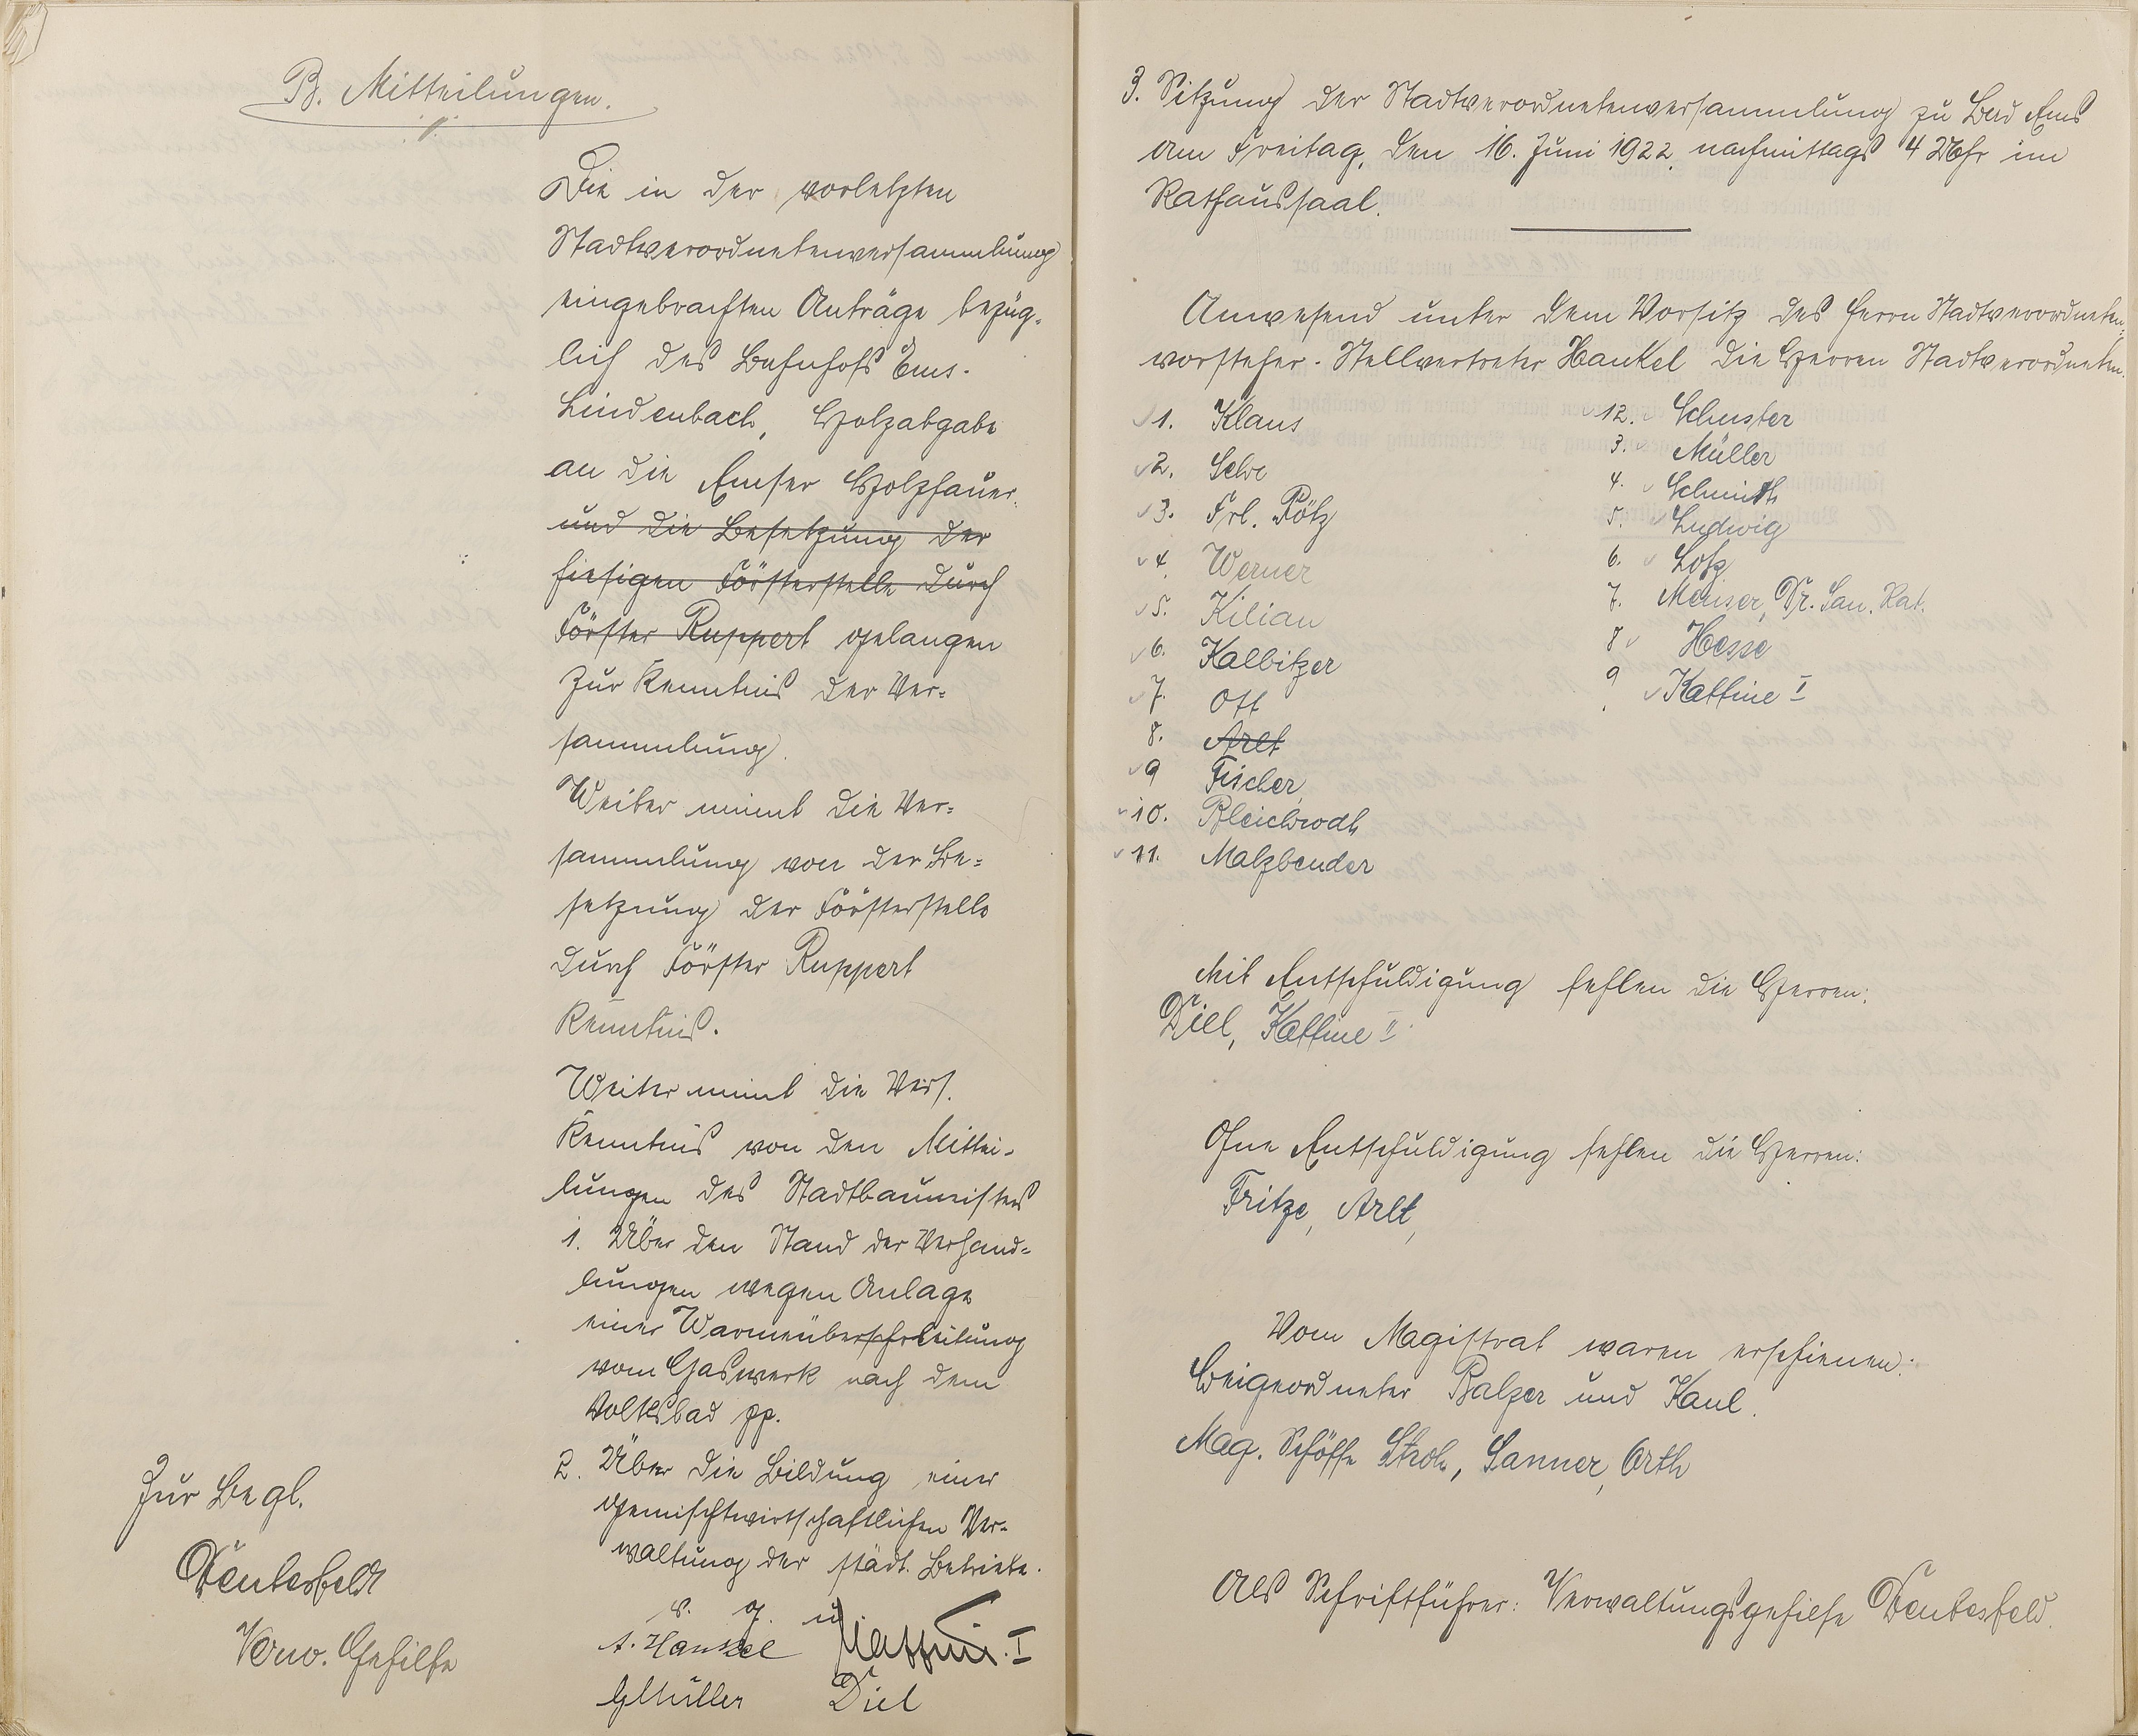 B. Mitteilungen.
Die in der vorletzten
Stadtverordnetenversammlung
eingebrachten Anträge bezüg-
lich des Bahnhofs Ems-
Lindenbach, Holzabgabe
an die Emser Holzhauer
und die Besetzung der
hiesigen Försterstelle durch
Förster Ruppert gelangen
zur Kenntnis der Ver-
sammlung.
Weiter nimmt die Ver-
sammlung von der Be-
setzung der Försterstelle
durch Förster Ruppert
Kenntnis.
Weiter nimmt die Vers.
Kenntnis von den Mittei-
lungen des Stadtbaumeisters
1. Über den Stand der Verhand-
lungen wegen Anlage
einer
vom Gaswerk nach dem
Volksbad pp.
2. Über die Bildung einer
gemischtwirtschaftlichen Ver-
waltung der städt. Betriebe.
v. g. u.
A. Hankel Kattine I
Müller Diel
Zur Begl.
Deutesfeld
Verw. Gehilfe
3. Sitzung der Stadtverordnetenversammlung zu Bad Ems
am Freitag, den 16. Juni 1922, nachmittags 4 Uhr im
Rathaussaal.
Anwesend unter dem Vorsitz des Herrn Stadtverordneten-
vorsteher-Stellvertreter Hankel die Herren Stadtverordneten.
1. Klaus
2. Selve
3. Frl. Pötz
4. Werner
5. Kilian
6. Kalbitzer
7. Ott
8. Arlt
9 Fischer
10. Bleichrodt
11. Malzbender
12. Schuster
3. Müller
4. Schmidt
5. Ludwig
6. Lotz
7. Meuser, Dr. San. Rat.
8 Hesse
9. Kattine I
Mit Entschuldigung fehlen die Herren:
Diel, Kattine II
Ohne Entschuldigung fehlen die Herren:
Fritze, Arlt,
Vom Magistrat waren erschienen:
Beigeordneter Balzer und Kaul.
Mag. Schöffe Stroh, Sanner, Orth
Als Schriftführer: Verwaltungsgehilfe Deutesfeld.